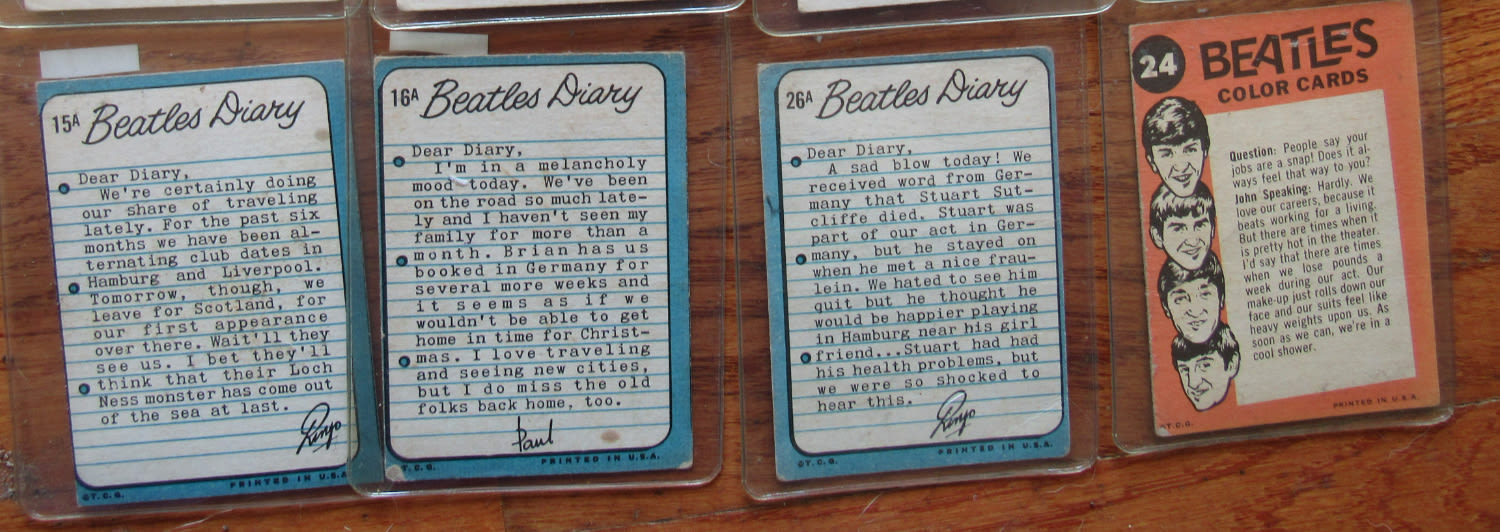 15A Beatles Diary
Dear Diary,
We're certainly doing
our share of traveling
lately. For the past six
months we have been al-
ternating club dates in
Hamburg and Liverpool.
Tomorrow, though, we
leave for Scotland, for
our first appearance
over there. Wait'll they
see us. I bet they'll
think that their Loch
Ness monster has come out
of the sea at last.
Ringo
©T.C.G. PRINTED IN U.S.A.
16A Beatles Diary
Dear Diary,
I'm in a melancholy
mood today. We've been
on the road so much late-
ly and I haven't seen my
family for more than a
month. Brian has us
booked in Germany for
several more weeks and
it seems as if we
wouldn't be able to get
home in time for Christ-
mas. I love traveling
and seeing new cities,
but I do miss the old
folks back home, too.
Paul
©T.C.G. PRINTED IN U.S.A.
26A Beatles Diary
Dear Diary,
A sad blow today! We
received word from Ger-
many that Stuart Sut-
cliffe died. Stuart was
part of our act in Ger-
many, but he stayed on
when he met a nice frau-
lein. We hated to see him
quit but he thought he
would be happier playing
in Hamburg near his girl
friend...Stuart had had
his health problems, but
we were so shocked to
hear this.
Ringo
©T.C.G. PRINTED IN U.S.A.
24 BEATLES
COLOR CARDS
Question: People say your
jobs are a snap! Does it al-
ways feel that way to you?
John Speaking: Hardly. We
love our careers, because it
beats working for a living.
But there are times when it
is pretty hot in the theater.
I'd say that there are times
when we lose pounds a
week during our act. Our
make-up just rolls down our
face and our suits feel like
heavy weights upon us. As
soon as we can, we're in a
cool shower.
©T.C.G. PRINTED IN U.S.A.